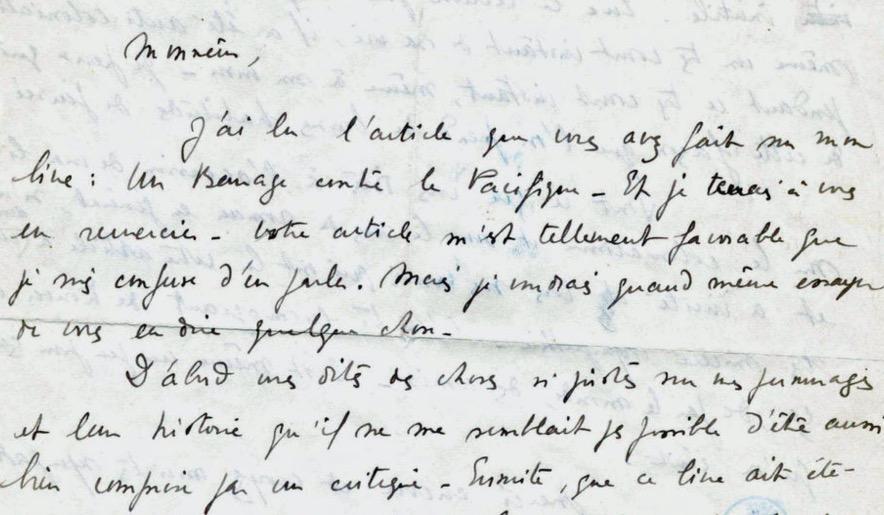 Monsieur,
J'ai lu l'article que vous avez fait sur mon
livre : Un Barrage contre le Pacifique - Et je tenais à vous
en remercier - Votre article m'est tellement favorable que
je suis confuse d'en parler. Mais je voudrais quand même essayer
de vous en dire quelque chose -
D'abord vous dites des choses si justes sur mes personnages
et leur histoire qu'il ne me semblait pas possible d'être aussi
bien comprise par un critique - Ensuite, que ce livre ait été